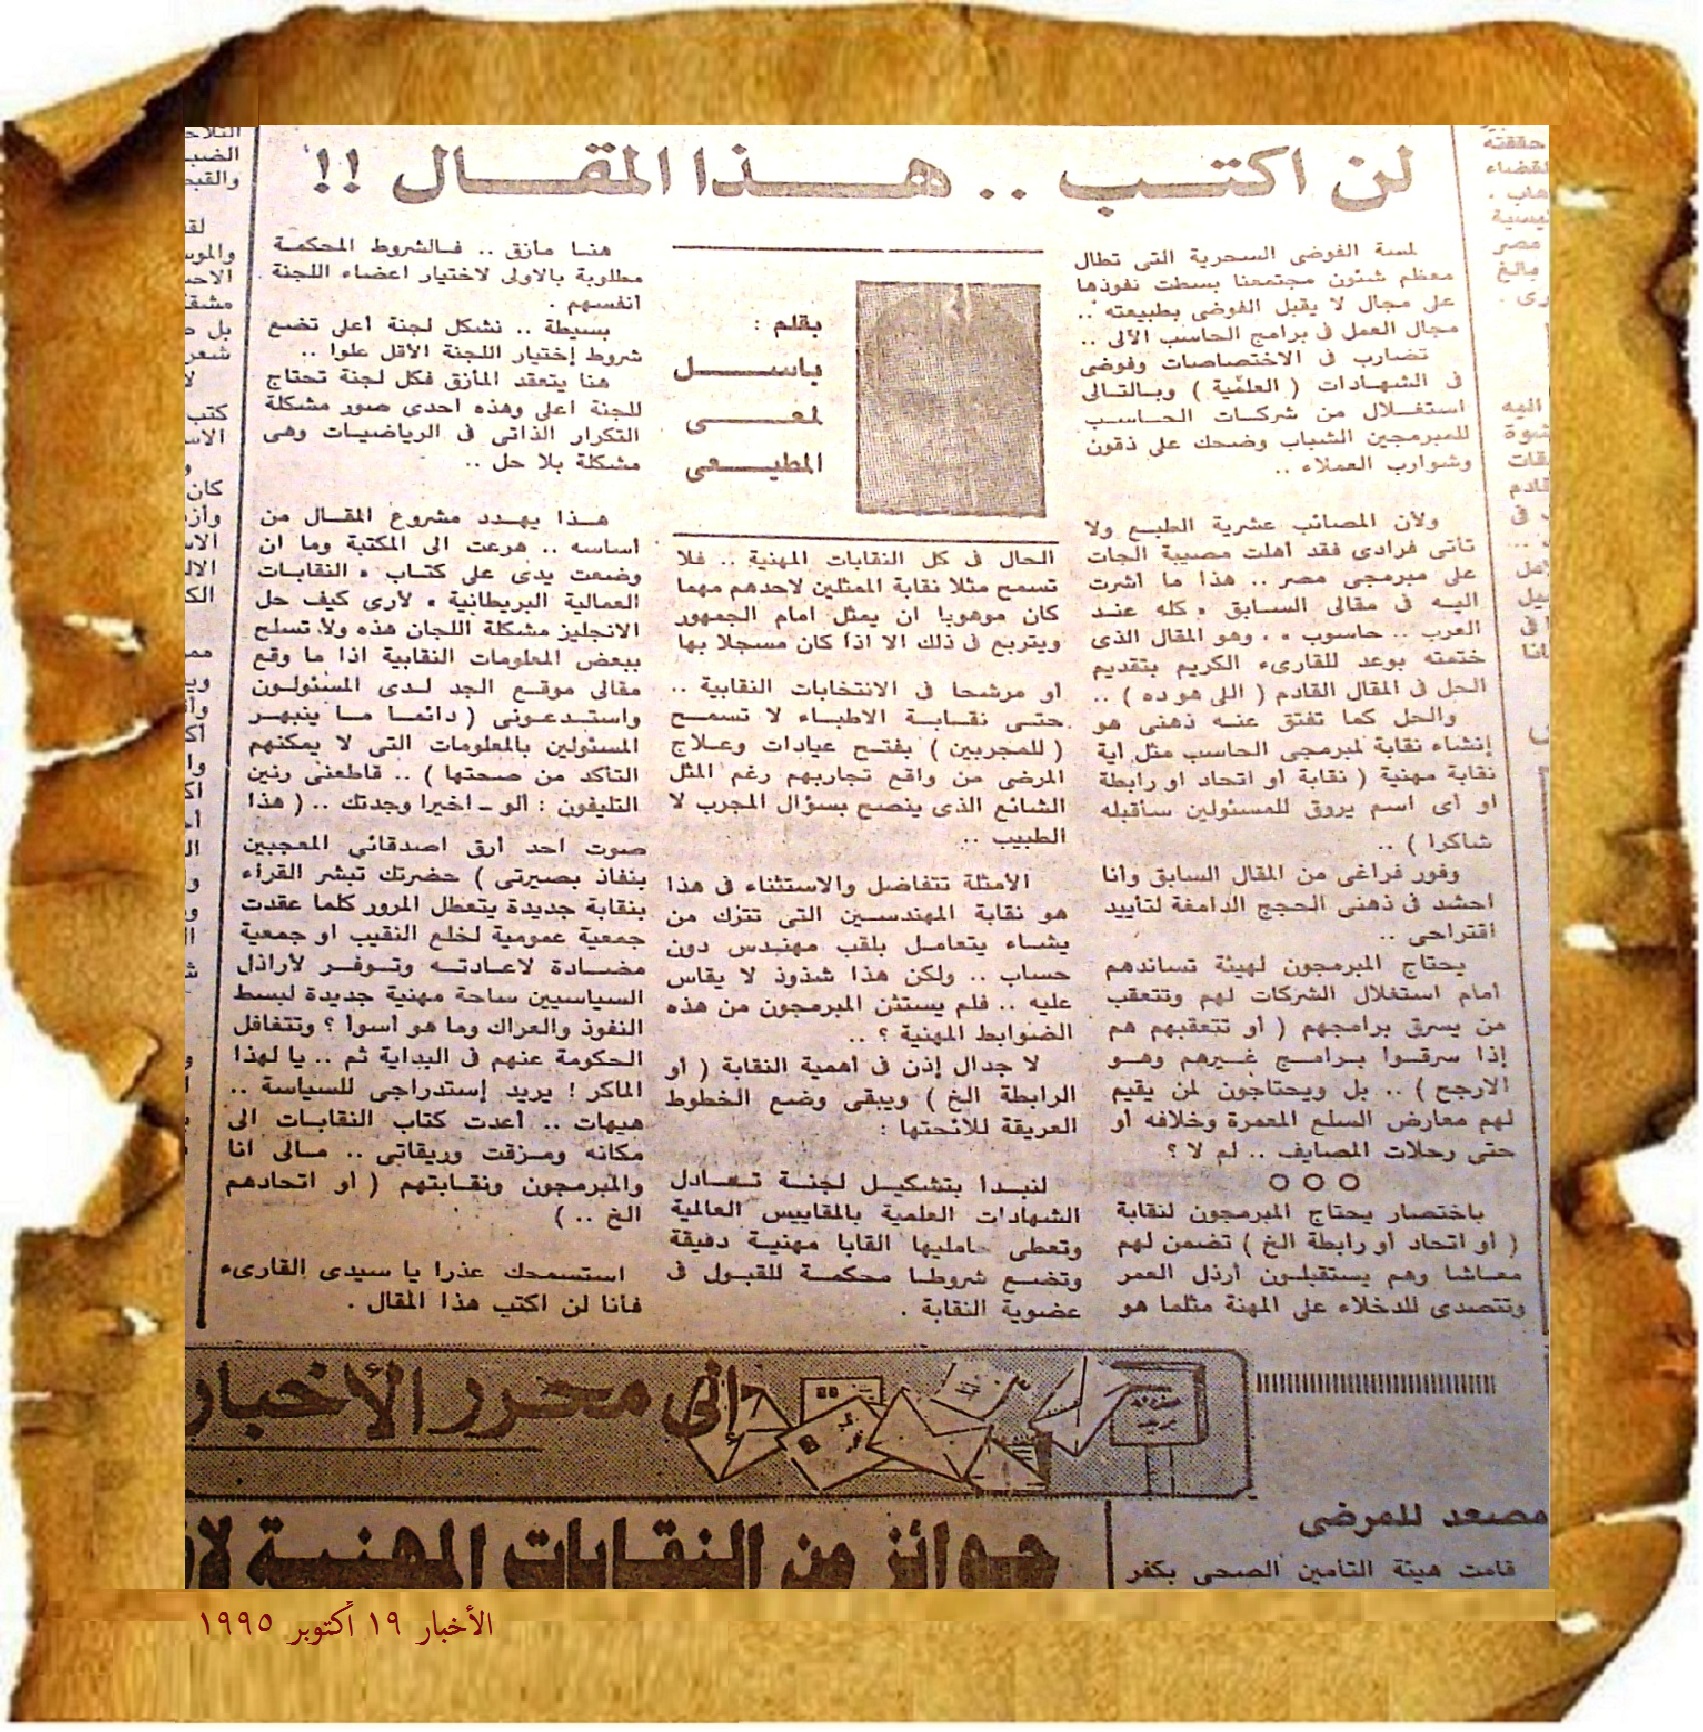 لن اكتب .. هذا المقال !!
لمسة الفوضى السحرية التى تطال
معظم شئون مجتمعنا بسطت نفوذها
على مجال لا يقبل الفوضى بطبيعته ..
مجال العمل فى برامج الحاسب الآلى ..
تضارب فى الاختصاصات وفوضى
فى الشهادات ( العلمية ) وبالتالى
استغلال من شركات الحاسب
للمبرمجين الشباب وضحك على ذقون
وشوارب العملاء ..
ولأن المصائب عشرية الطبع ولا
تأتى فرادى فقد أهلت مصيبة الجات
على مبرمجى مصر .. هذا ما أشرت
اليه فى مقالى السابق « كله عند
العرب .. حاسوب » . وهو المقال الذى
ختمته بوعد للقارىء الكريم بتقديم
الحل فى المقال القادم ( اللى هو ده ) ..
والحل كما تفتق عنه ذهنى هو
إنشاء نقابة لمبرمجى الحاسب مثل أية
نقابة مهنية ( نقابة أو اتحاد أو رابطة
او أى اسم يروق للمسئولين سأقبله
شاكرا ) ..
وفور فراغى من المقال السابق وأنا
احشد فى ذهنى الحجج الدامغة لتأييد
اقتراحى ..
يحتاج المبرمجون لهيئة تساندهم
أمام استغلال الشركات لهم وتتعقب
من يسرق برامجهم ( أو تتعقبهم هم
إذا سرقوا برامج غيرهم وهو
الارجح ) .. بل ويحتاجون لمن يقيم
لهم معارض السلع المعمرة وخلافه أو
حتى رحلات المصايف .. لم لا ؟
○ ○ ○
باختصار يحتاج المبرمجون لنقابة
( أو اتحاد أو رابطة الخ ) تضمن لهم
معاشا وهم يستقبلون أرذل العمر
وتتصدى للدخلاء على المهنة مثلما هو
بقلم :
باسل
لمعى
المطيعى
الحال فى كل النقابات المهنية .. فلا
تسمح مثلا نقابة الممثلين لأحدهم مهما
كان موهوبا ان يمثل امام الجمهور
ويتربع فى ذلك الا اذا كان مسجلا بها
أو مرشحا فى الانتخابات النقابية ..
حتى نقابة الأطباء لا تسمح
( للمجربين ) بفتح عيادات وعلاج
المرضى من واقع تجاربهم رغم المثل
الشائع الذى ينصح بسؤال المجرب لا
الطبيب ..
الأمثلة تتفاضل والاستثناء فى هذا
هو نقابة المهندسين التى تترك من
يشاء يتعامل بلقب مهندس دون
حساب .. ولكن هذا شذوذ لا يقاس
عليه .. فلم يستثن المبرمجون من هذه
الضوابط المهنية ؟ ..
لا جدال إذن فى أهمية النقابة ( أو
الرابطة الخ ) ويبقى وضع الخطوط
العريقة للائحتها :
لنبدا بتشكيل لجنة تعادل
الشهادات العلمية بالمقاييس العالمية
وتعطى حامليها القابا مهنية دقيقة
وتضع شروطا محكمة للقبول فى
عضوية النقابة .
هنا مأزق .. فالشروط المحكمة
مطلوبة بالاولى لاختيار اعضاء اللجنة
انفسهم .
بسيطة .. نشكل لجنة أعلى تضع
شروط إختيار اللجنة الأقل علوا ..
هنا يتعقد المأزق فكل لجنة تحتاج
للجنة اعلى وهذه احدى صور مشكلة
التكرار الذاتى فى الرياضيات وهى
مشكلة بلا حل ..
هذا يهدد مشروع المقال من
أساسه .. هرعت الى المكتبة وما ان
وضعت يدى على كتاب « النقابات
العمالية البريطانية » لأرى كيف حل
الانجليز مشكلة اللجان هذه ولأتسلح
ببعض المعلومات النقابية اذا ما وقع
مقالى موقع الجد لدى المسئولون
واستدعونى ( دائما ما ينبهر
المسئولين بالمعلومات التى لا يمكنهم
التأكد من صحتها ) .. قاطعنى رنين
التليفون : ألو ـ اخيرا وجدتك .. ( هذا
صوت احد أرق اصدقائى المعجبين
بنفاذ بصيرتى ) حضرتك تبشر القراء
بنقابة جديدة يتعطل المرور كلما عقدت
جمعية عمومية لخلع النقيب او جمعية
مضادة لاعادته وتوفر لأراذل
السياسيين ساحة مهنية جديدة لبسط
النفوذ والعراك وما هو اسوأ ؟ وتتغافل
الحكومة عنهم فى البداية ثم .. يا لهذا
الماكر ! يريد إستدراجى للسياسة ..
هيهات .. أعدت كتاب النقابات الى
مكانه ومزقت وريقاتى .. مالى أنا
والمبرمجون ونقابتهم ( او اتحادهم
الخ .. )
استسمحك عذرا يا سيدى القارىء
فأنا لن اكتب هذا المقال .
إلى محرر الأخبار
مصعد للمرضى
قامت هيئة التأمين الصحى بكفر
جوائز من النقابات المهنية
الأخبار ١٩ أكتوبر ١٩٩٥